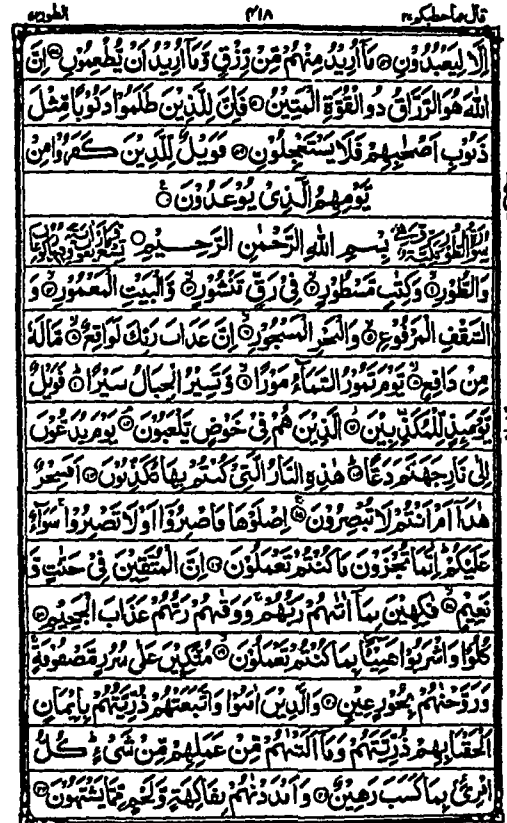 قال فما خطبكم ٢٧ ٤١٨ الطور ٥٢
اِلَّا لِيَعْبُدُوْنِ ۝ مَاۤ اُرِيْدُ مِنْهُمْ مِّنْ رِّزْقٍ وَّمَاۤ اُرِيْدُ اَنْ يُّطْعِمُوْنِ ۝ اِنَّ
اللّٰهَ هُوَ الرَّزَّاقُ ذُو الْقُوَّةِ الْمَتِيْنُ ۝ فَاِنَّ لِلَّذِيْنَ ظَلَمُوْا ذَنُوْبًا مِّثْلَ
ذَنُوْبِ اَصْحٰبِهِمْ فَلَا يَسْتَعْجِلُوْنِ ۝ فَوَيْلٌ لِّلَّذِيْنَ كَفَرُوْا مِنْ
يَّوْمِهِمُ الَّذِيْ يُوْعَدُوْنَ ۝
بِسْمِ اللّٰهِ الرَّحْمٰنِ الرَّحِيْمِ ۝
وَالطُّوْرِ ۝ وَكِتٰبٍ مَّسْطُوْرٍ ۝ فِيْ رَقٍّ مَّنْشُوْرٍ ۝ وَّالْبَيْتِ الْمَعْمُوْرِ ۝ وَ
السَّقْفِ الْمَرْفُوْعِ ۝ وَالْبَحْرِ الْمَسْجُوْرِ ۝ اِنَّ عَذَابَ رَبِّكَ لَوَاقِعٌ ۝ مَّا لَهٗ
مِنْ دَافِعٍ ۝ يَّوْمَ تَمُوْرُ السَّمَآءُ مَوْرًا ۝ وَّتَسِيْرُ الْجِبَالُ سَيْرًا ۝ فَوَيْلٌ
يَّوْمَىِٕذٍ لِّلْمُكَذِّبِيْنَ ۝ الَّذِيْنَ هُمْ فِيْ خَوْضٍ يَّلْعَبُوْنَ ۝ يَوْمَ يُدَعُّوْنَ
اِلٰى نَارِ جَهَنَّمَ دَعًّا ۝ هٰذِهِ النَّارُ الَّتِيْ كُنْتُمْ بِهَا تُكَذِّبُوْنَ ۝ اَفَسِحْرٌ
هٰذَاۤ اَمْ اَنْتُمْ لَا تُبْصِرُوْنَ ۝ اِصْلَوْهَا فَاصْبِرُوْۤا اَوْ لَا تَصْبِرُوْا ۚ سَوَآءٌ
عَلَيْكُمْ ؕ اِنَّمَا تُجْزَوْنَ مَا كُنْتُمْ تَعْمَلُوْنَ ۝ اِنَّ الْمُتَّقِيْنَ فِيْ جَنّٰتٍ وَّ
نَعِيْمٍ ۝ فٰكِهِيْنَ بِمَاۤ اٰتٰىهُمْ رَبُّهُمْ ۚ وَوَقٰىهُمْ رَبُّهُمْ عَذَابَ الْجَحِيْمِ ۝
كُلُوْا وَاشْرَبُوْا هَنِيْٓـًٔا بِمَا كُنْتُمْ تَعْمَلُوْنَ ۝ مُتَّكِـِٕيْنَ عَلٰى سُرُرٍ مَّصْفُوْفَةٍ ۚ
وَزَوَّجْنٰهُمْ بِحُوْرٍ عِيْنٍ ۝ وَالَّذِيْنَ اٰمَنُوْا وَاتَّبَعَتْهُمْ ذُرِّيَّتُهُمْ بِاِيْمَانٍ
اَلْحَقْنَا بِهِمْ ذُرِّيَّتَهُمْ وَمَاۤ اَلَتْنٰهُمْ مِّنْ عَمَلِهِمْ مِّنْ شَيْءٍ ؕ كُلُّ
امْرِئٍۢ بِمَا كَسَبَ رَهِيْنٌ ۝ وَاَمْدَدْنٰهُمْ بِفَاكِهَةٍ وَّلَحْمٍ مِّمَّا يَشْتَهُوْنَ ۝